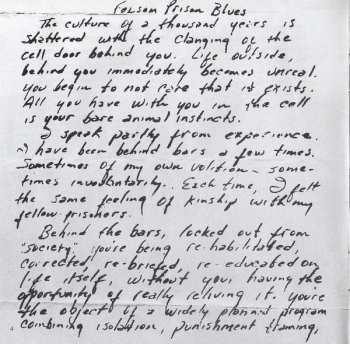 Folsom Prison Blues
The culture of a thousand years is
shattered with the clanging of the
cell door behind you. Life outside,
behind you immediately becomes unreal.
you begin to not care that it exists.
All you have with you in the cell
is your bare animal instincts.
I speak partly from experience.
I have been behind bars a few times.
Sometimes of my own volition - some-
times involuntarily. Each time, I felt
the same feeling of kinship with my
fellow prisoners.
Behind the bars, locked out from
"society," you're being re-habilitated,
corrected, re-briefed, re-educated on
life itself, without you having the
opportunity of really reliving it. you're
the object of a widely planned program
combining isolation, punishment, training,